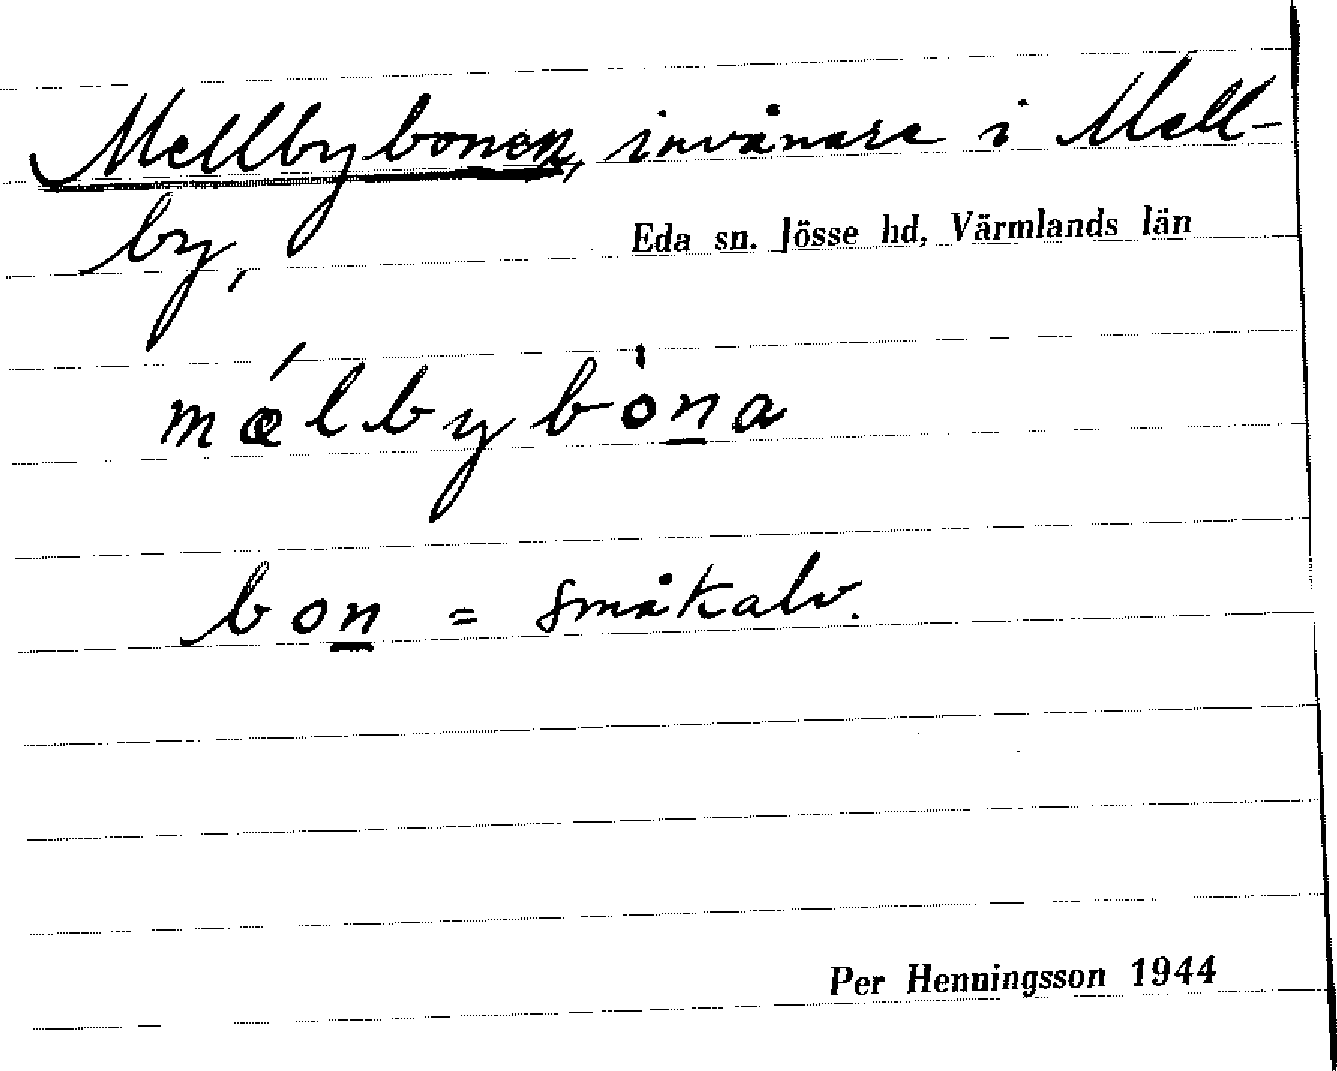 Mellbybonen, invånare i Mell-
by,
Eda sn. Jösse hd, Värmlands län
mǽlbybȯn̲a
bon̲ = småkalv.
Per Henningsson 1944